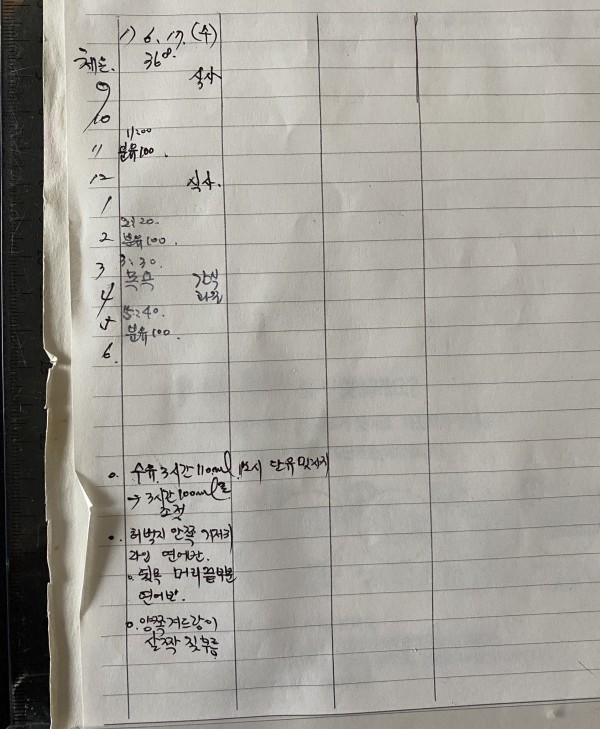 1) 6. 17. (수)
체온. 36⁸.
9 식사
10
11:00
11 분유100.
12 식사.
1
2:20.
2 분유100.
3:30.
3 목욕 간식
4 과일
5:40.
5 분유100.
6.
o. 수유. 3시간 110ml. 1시 단유 및
→ 3시간 100ml로
조절
o. 허벅지 안쪽 기저귀
라인 연어반.
o. 뒷목 머리끝부분
연어반.
o. 양쪽 겨드랑이
살짝 짓무름